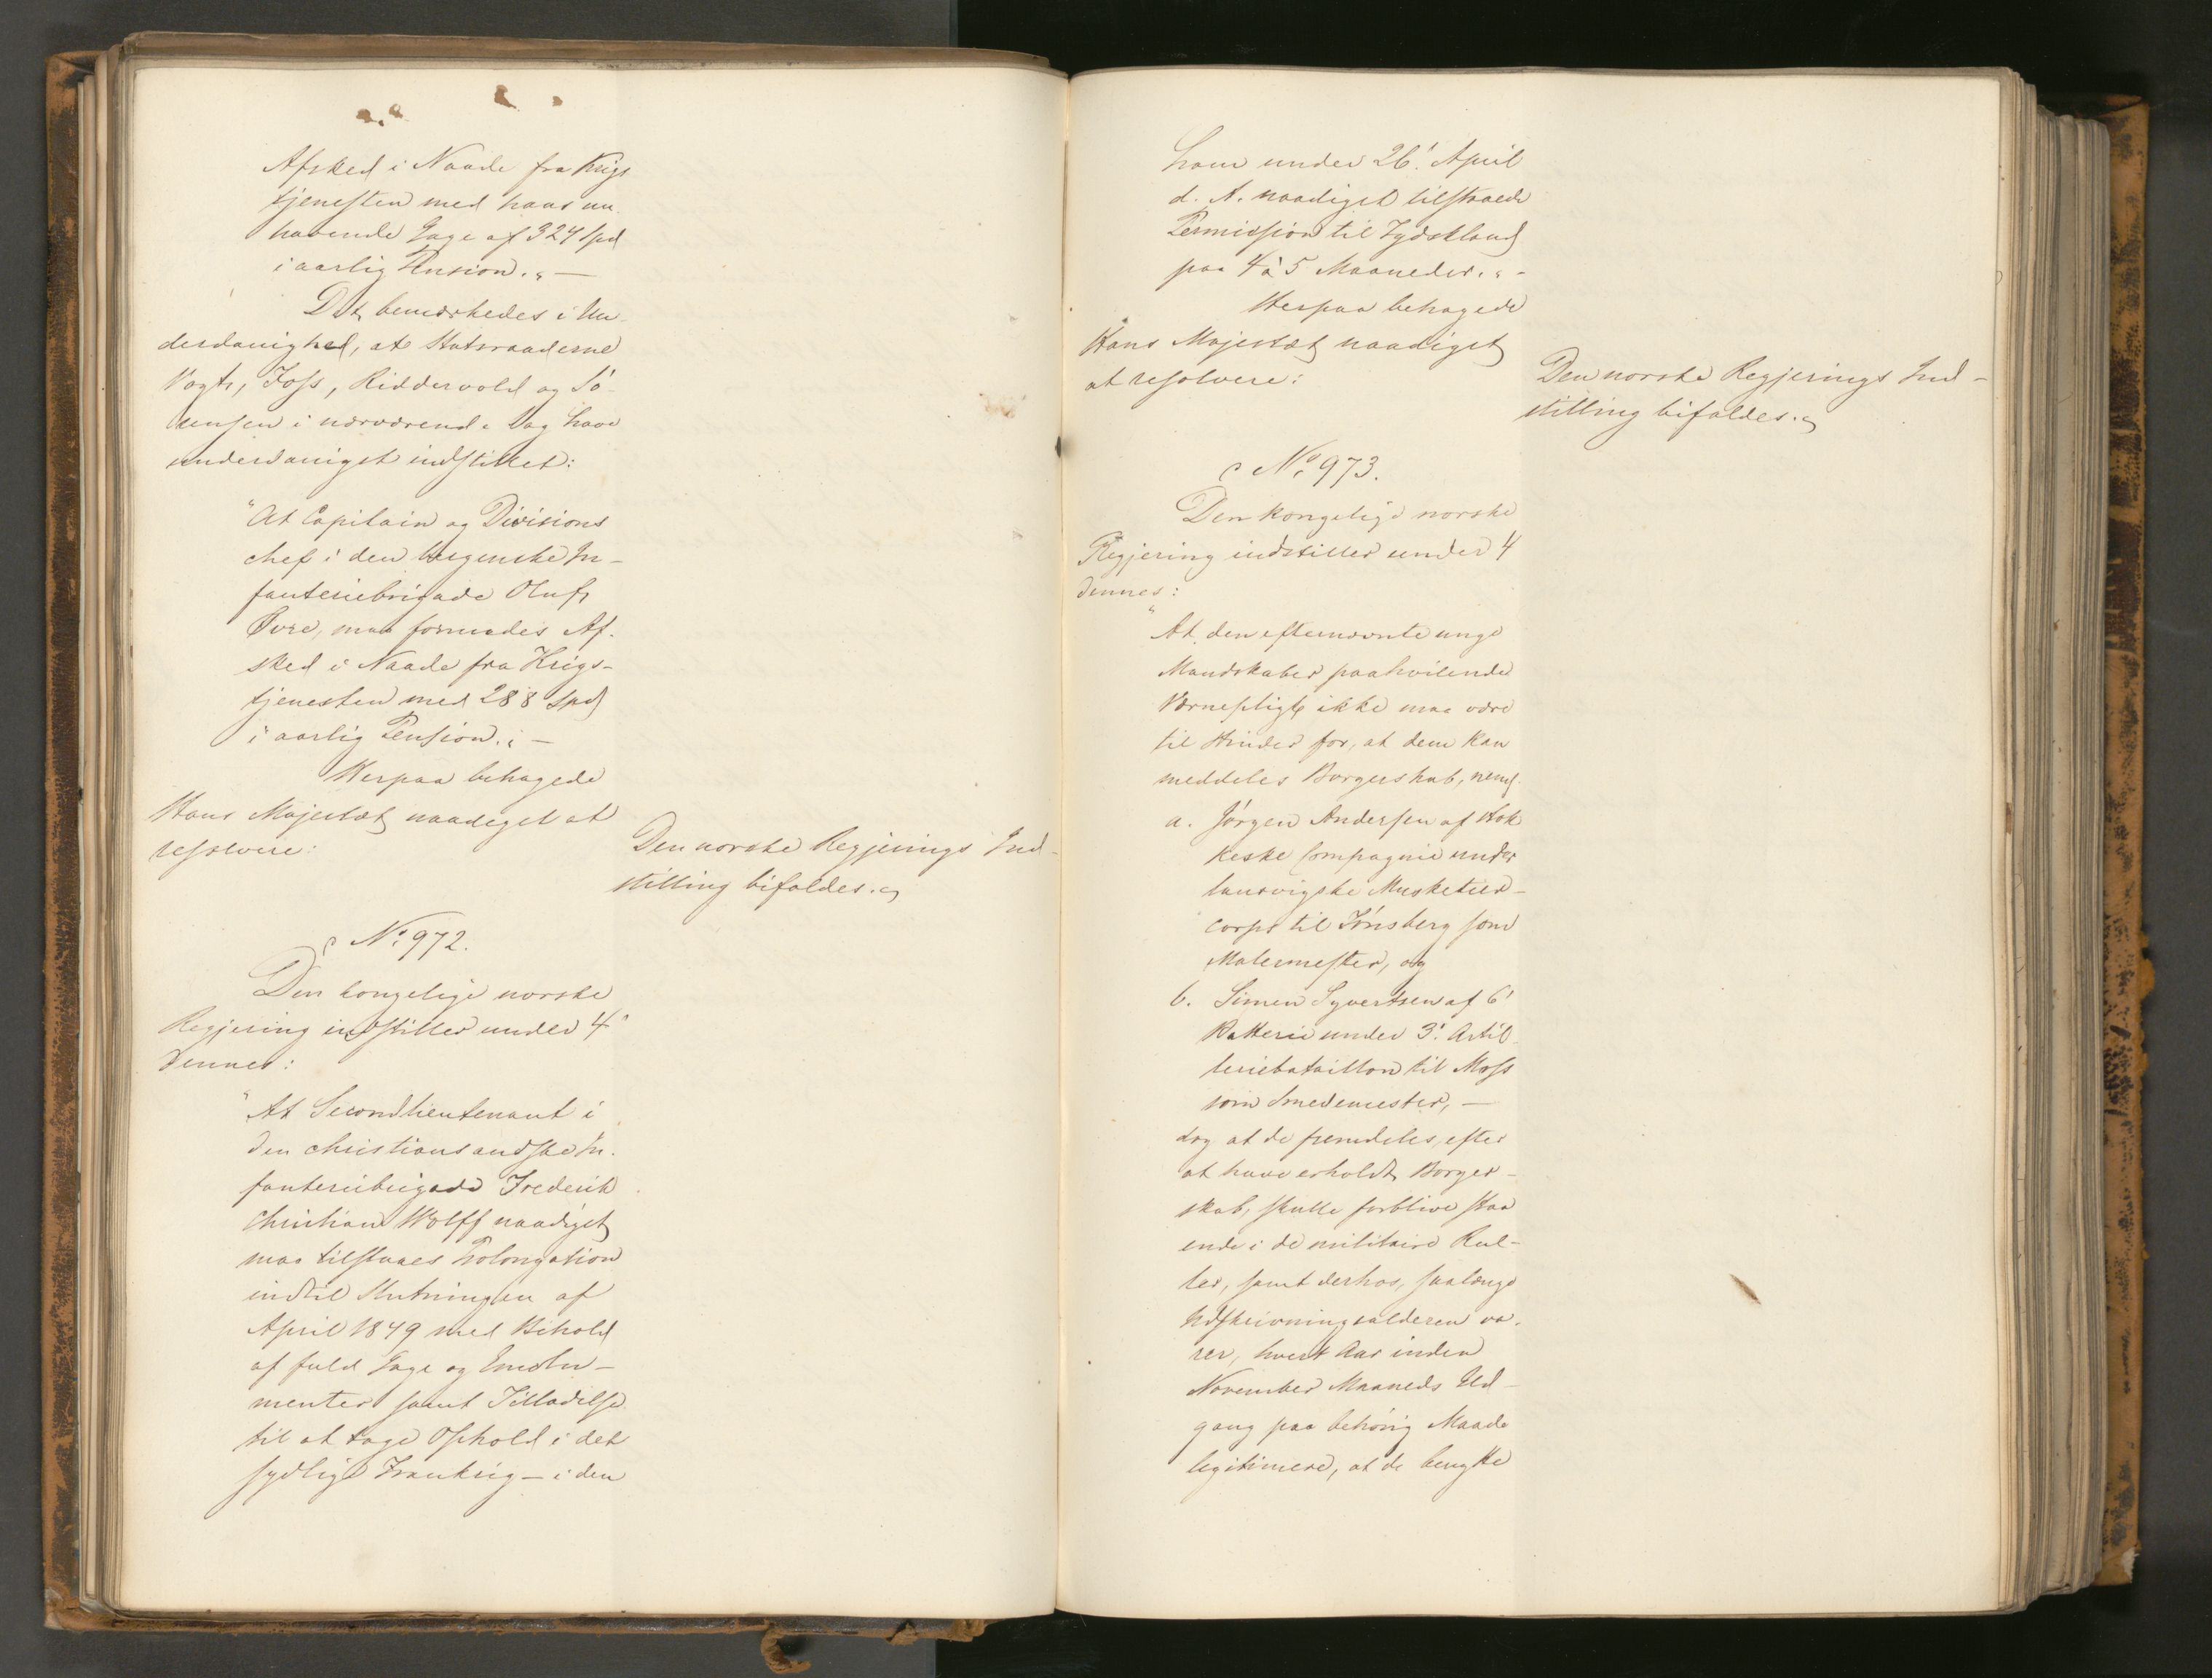 Afsked i Naade fra Krigs
tjenesten med havs nu
havende Gage af 324 Spd
i aarlig Pension."—
Det bemærkedes i Un-
derdanighed, at Statsraaderne
Vogt, Foss, Riddervold og Sö-
rensen i nærværende Dag have
underdanigst indstillet:
"At Capitain og Divisions
chef i den bergenske In-
fanteriebrigade Oluf
Øvre, maa formedes Af-
sked i Naade fra Krigs-
tjenesten med 288 Spd
i aarlig Pension."—
Herpaa behagede
Hans Majestæt naadigst at
resolvere:
Den norske Regjerings Ind-
stilling bifaldes.
No. 972.
Den kongelige norske
Regjering indstiller under 4
dennes:
"At Secondlieutenant i
den christiansandske In-
fanteribrigade Frederik
Christian Wolff naadigst
maa tilstaaes Prolongation
indtil Slutningen af
April 1849 med Bihold
af fuld Gage og Emolu-
menter samt Tilladelse
til at tage Ophold i det
sydlige Frankrig – i den
ham under 26' April
d. A. naadigst tilstaaede
Permission til Tydskland
paa 4 à 5 Maaneder."-
Herpaa behagede
Hans Majestæt naadigst
at resolvere:
Den norske Regjerings Ind-
stilling bifaldes.
No. 973.
Den kongelige norske
Regjering indstiller under 4
dennes:
"At den efternævnte unge
Mandskaber paahvilende
Værnepligt ikke maa være
til Hinder for, at dem kan
meddeles Borgerskab, neml.
a. Jörgen Andersen af Hok
keske Compagnie under
laurvigske Musketeer-
corps til Tönsberg som
Malermester, og
b. Simen Syvertsen af 6'
Batterie under 3' Artil-
leriebataillon til Moss
som Smedemester, —
dog at de fremdeles, efter
at have erholdt Borger-
skab, skulle forblive staa
ende i de militaire Rul-
ler, samt derhos, saalænge
Udskrivningsalderen va-
rer, hvert Aar inden
November Maaneds Ud-
gang paa behörig Maade
legitimere, at de benytte